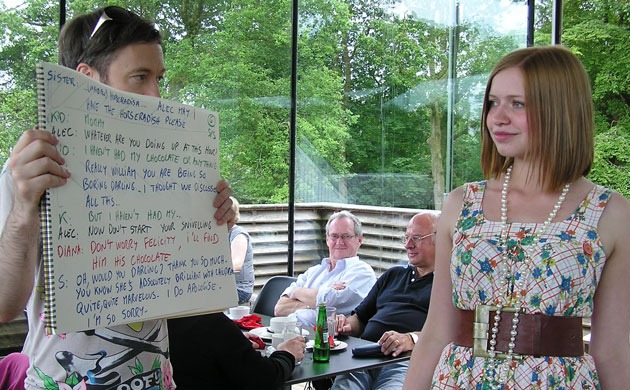 SISTER: HORSERADISH... ALEC MAY I
HAVE THE HORSERADISH PLEASE
KID: MOMMY
ALEC: WHATEVER ARE YOU DOING UP AT THIS HOUR?
KID: I HAVEN'T HAD MY CHOCOLATE OR ANYTHING
REALLY WILLIAM YOU ARE BEING SO
BORING DARLING. I THOUGHT WE DISCUSSED
ALL THIS.
K. BUT I HAVEN'T HAD MY...
ALEC. NOW DON'T START YOUR SNIVELLING
DIANA: DON'T WORRY FELICITY, I'LL FIND
HIM HIS CHOCOLATE
S: OH, WOULD YOU DARLING? THANK YOU SO MUCH.
YOU KNOW SHE'S ABSOLUTELY BRILLIANT WITH CHILDREN
QUITE, QUITE MARVELOUS. I DO APOLOGISE.
I'M SO SORRY-